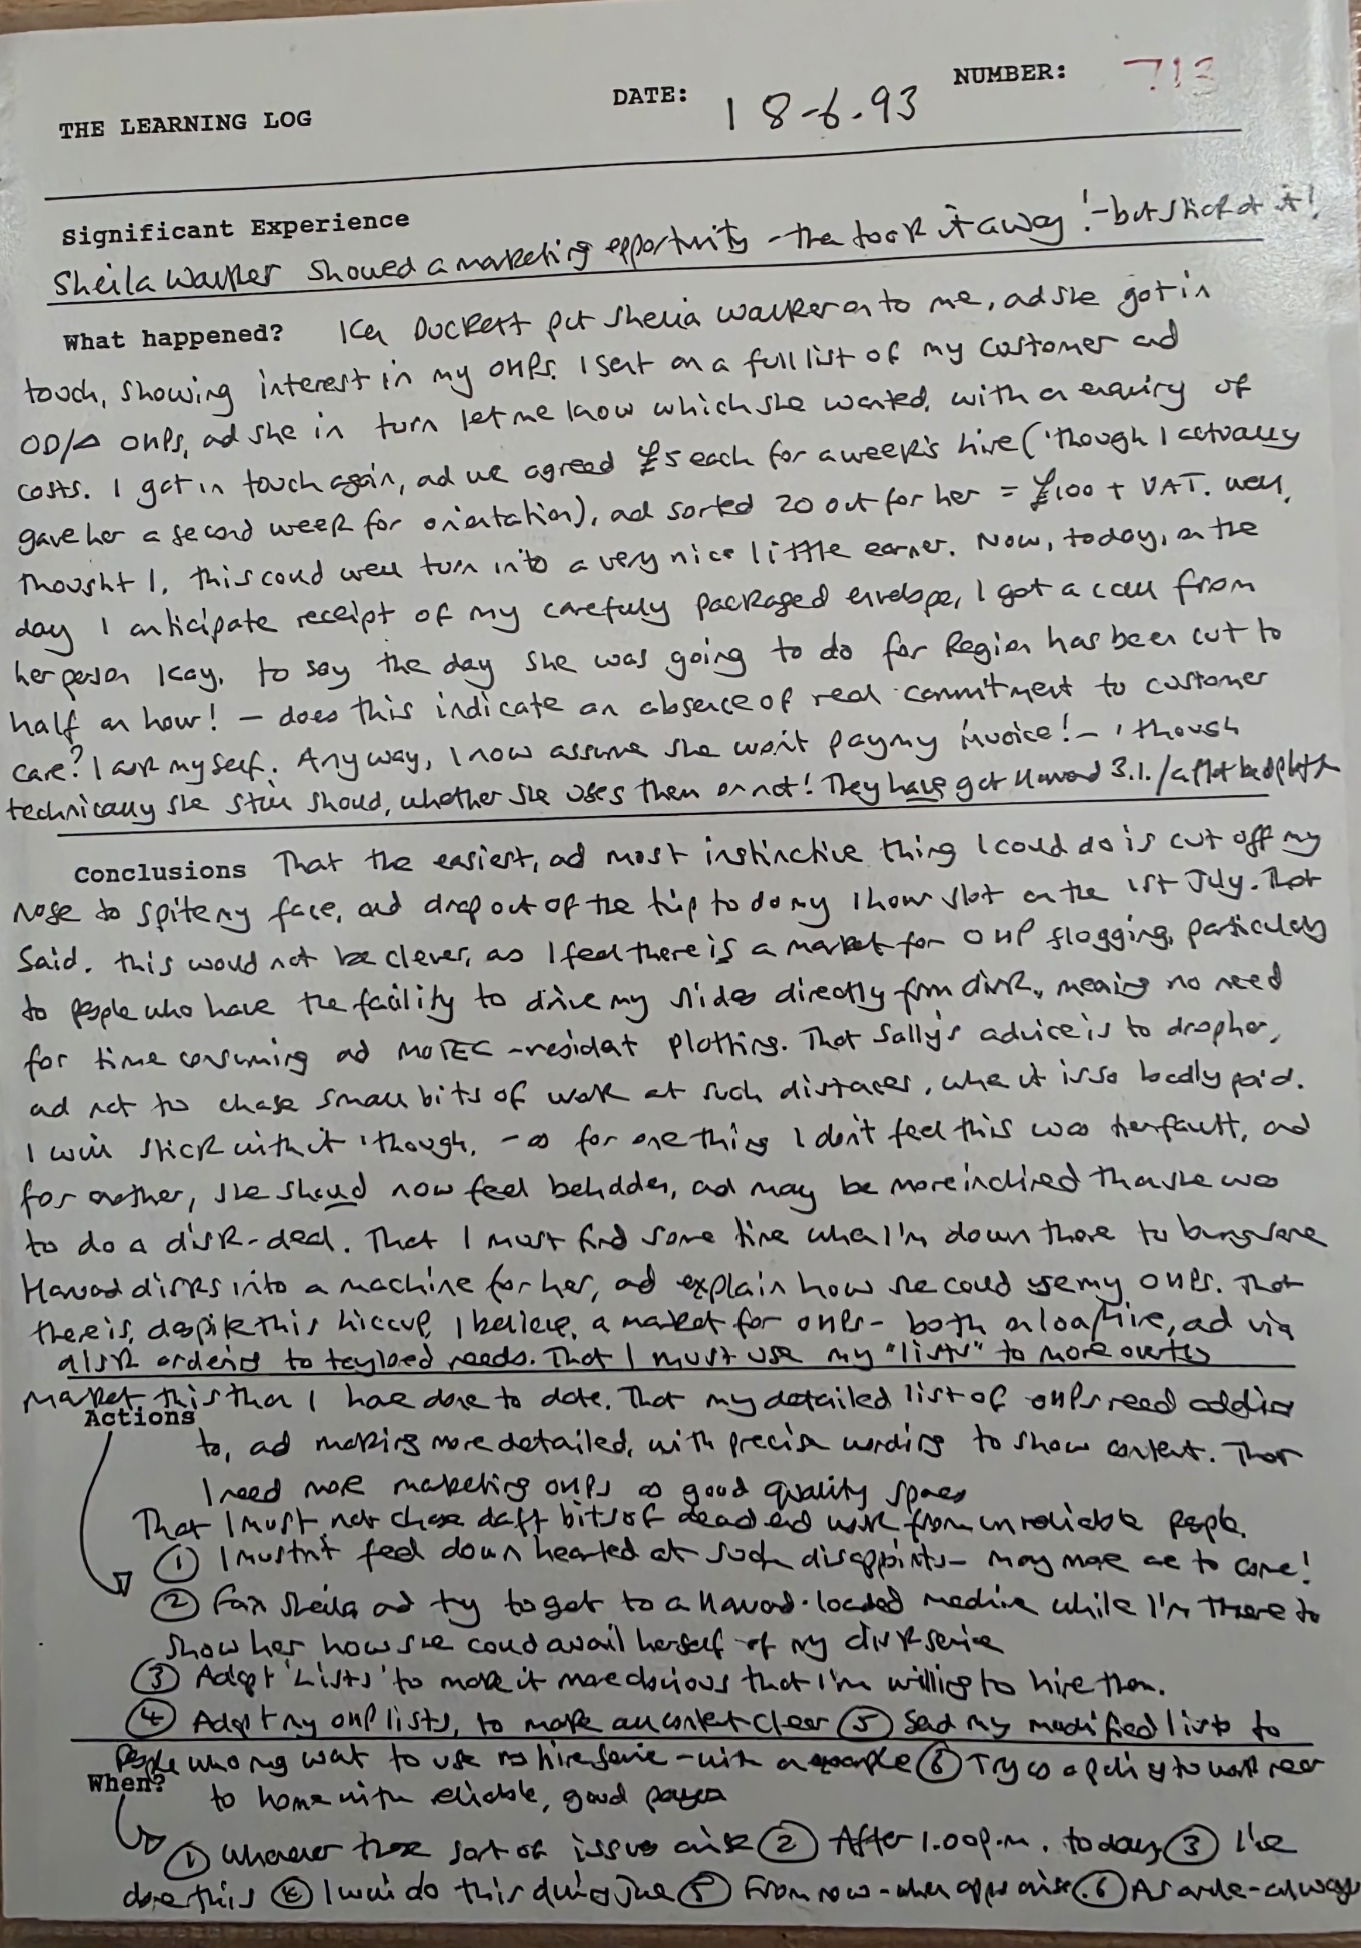 THE LEARNING LOG DATE: 18-6.93 NUMBER: 713
Significant Experience
Sheila Walker showed a marketing opportunity - then took it away! - but stick at it!
What happened? Ken Duckett put Sheila Walker on to me, and she got in
touch, showing interest in my OHPs. I sent on a full list of my customer and
OD/Δ OHPs, and she in turn let me know which she wanted, with an enquiry of
costs. I got in touch again, and we agreed £5 each for a week's hire ('though I actually
gave her a second week for orientation), and sorted 20 out for her = £100 + VAT. Well,
thought I, this could well turn into a very nice little earner. Now, today, on the
day I anticipate receipt of my carefully packaged envelope, I got a call from
her person Kay, to say the day she was going to do for Region has been cut to
half an hour! - does this indicate an absence of real commitment to customer
care? I ask myself. Anyway, I now assume she won't pay my invoice! - 'though
technically she still should, whether she uses them or not! They have got Harvard 3.1./a flat bed plotter
Conclusions That the easiest, and most instinctive thing I could do is cut off my
nose to spite my face, and drop out of the trip to do my 1 hour slot on the 1st July. That
said, this would not be clever, as I feel there is a market for OHP flogging, particularly
to people who have the facility to drive my slides directly from disk, meaning no need
for time consuming and MOTEC-resident plotting. That Sally's advice is to drop her,
and not to chase small bits of work at such distances, when it is so badly paid.
I will stick with it 'though, - as for one thing I don't feel this was her fault, and
for another, she should now feel beholden, and may be more inclined than she was
to do a disk-deal. That I must find some time when I'm down there to bung some
Harvard disks into a machine for her, and explain how she could use my OHPs. That
there is, despite this hiccup, I believe, a market for OHPs - both on loan/hire, and via
disk ordering to taylored needs. That I must use my "lists" to more overtly
market this than I have done to date. That my detailed list of OHPs need adding
Actions
to, and making more detailed, with precise wording to show content. That
I need more marketing OHPs as good quality spares
That I must not chase daft bits of dead end work from unreliable people.
① I mustn't feel down hearted at such disappoints - many more are to come!
② Fax Sheila and try to get to a Harvard-loaded machine while I'm there to
show her how she could avail herself of my disk service
③ Adapt 'Lists' to make it more obvious that I'm willing to hire them.
④ Adapt my OHP lists, to make all content clear ⑤ Send my modified lists to
people who may want to use my hire service - with an example ⑥ Try as a policy to work near
When?
to home with reliable, good payers
① Whenever these sort of issues arise ② After 1.00p.m. today ③ I've
done this ④ I will do this during June ⑤ From now - when opps arise. ⑥ As a rule - always